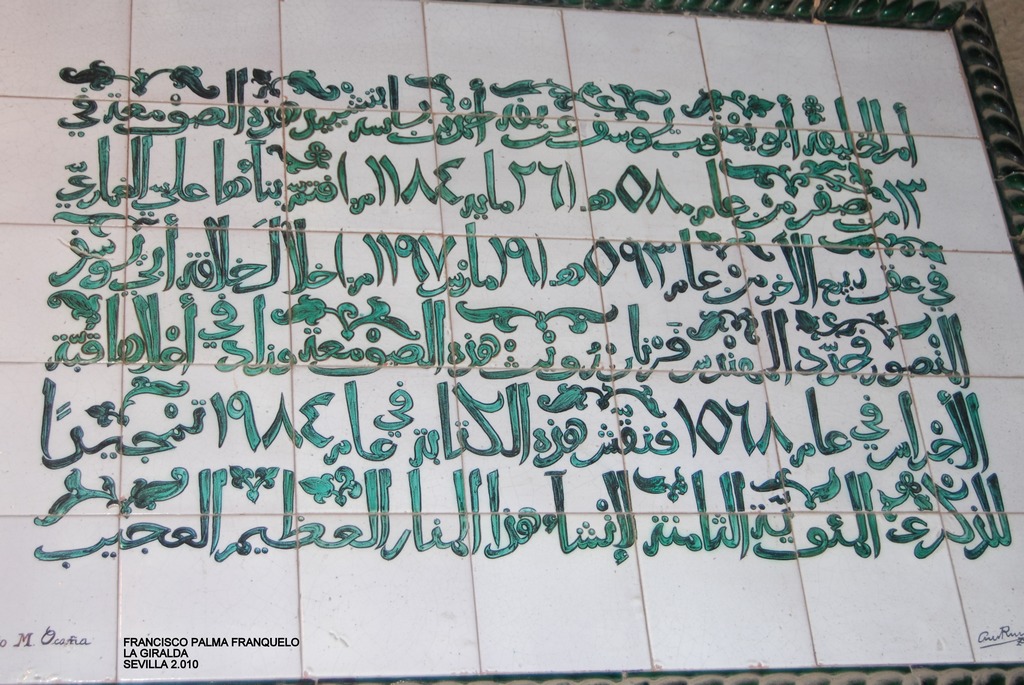 أمر الخليفة أبو يعقوب يوسف
هذه الصومعة في
١٣ من صفر من عام ٥٨٠ هـ (٢٦ مايه ١١٨٤ م) فتم بناها على الغماري
في ربيع الآخر من عام ٥٩٣ هـ (١٩ مارس ١١٩٧ م) خلال خلافة أبي يوسف
المنصور فجدد المهندس فرنان رويث هذه الصومعة وزاد في أعلاها قبة
الأجراس في عام ١٥٦٨ فنقش هذه الكتابة في عام ١٩٨٤ تمجيدًا
للذكرى المئوية الثامنة لإنشاء هذا المنار العظيم العجيب
M. Ocaña
FRANCISCO PALMA FRANQUELO
LA GIRALDA
SEVILLA 2.010